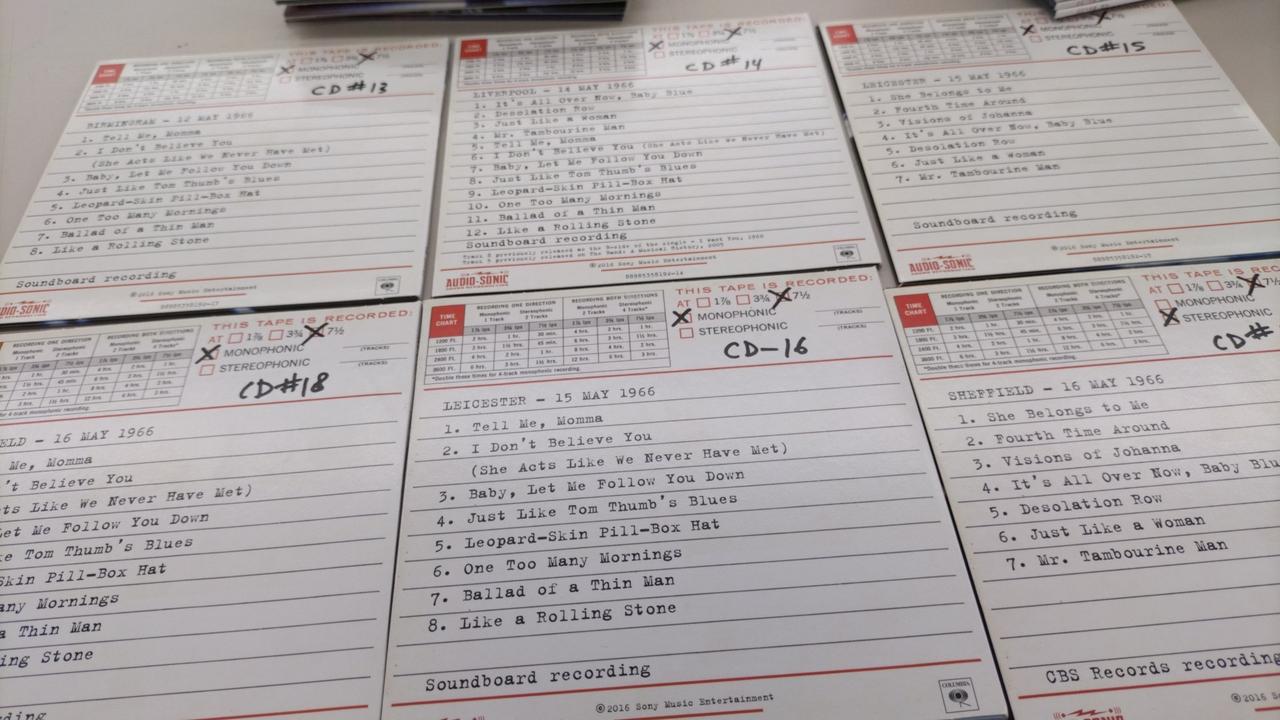 THIS TAPE IS RECORDED:
TIME CHART
1⅞ 3¾ 7½
MONOPHONIC
STEREOPHONIC
CD#13
BIRMINGHAM - 12 MAY 1966
1. Tell Me, Momma
2. I Don't Believe You
(She Acts Like We Never Have Met)
3. Baby, Let Me Follow You Down
4. Just Like Tom Thumb's Blues
5. Leopard-Skin Pill-Box Hat
6. One Too Many Mornings
7. Ballad of a Thin Man
8. Like a Rolling Stone
Soundboard recording
©2016 Sony Music Entertainment
AUDIO-SONIC
THIS TAPE IS RECORDED:
TIME CHART
MONOPHONIC
STEREOPHONIC
CD#14
LIVERPOOL - 14 MAY 1966
1. It's All Over Now, Baby Blue
2. Desolation Row
3. Just Like a Woman
4. Mr. Tambourine Man
5. Tell Me, Momma
6. I Don't Believe You (She Acts Like We Never Have Met)
7. Baby, Let Me Follow You Down
8. Just Like Tom Thumb's Blues
9. Leopard-Skin Pill-Box Hat
10. One Too Many Mornings
11. Ballad of a Thin Man
12. Like a Rolling Stone
Soundboard recording
Track 8 previously released as the B-side of the single - I Want You, 1966
Track 5 previously released on The Band: A Musical History, 2005
©2016 Sony Music Entertainment
AUDIO-SONIC
COLUMBIA
THIS TAPE IS RECORDED:
TIME CHART
MONOPHONIC
STEREOPHONIC
CD#15
LEICESTER - 15 MAY 1966
1. She Belongs to Me
2. Fourth Time Around
3. Visions of Johanna
4. It's All Over Now, Baby Blue
5. Desolation Row
6. Just Like a Woman
7. Mr. Tambourine Man
Soundboard recording
©2016 Sony Music Entertainment
AUDIO-SONIC
THIS TAPE IS RECORDED:
RECORDING ONE DIRECTION RECORDING BOTH DIRECTIONS
3¾ 7½
MONOPHONIC (TRACKS)
STEREOPHONIC (TRACKS)
for 4-track monophonic recording.
CD#18
ELD - 16 MAY 1966
Me, Momma
't Believe You
ts Like We Never Have Met)
Let Me Follow You Down
ke Tom Thumb's Blues
Skin Pill-Box Hat
any Mornings
a Thin Man
ing Stone
ding
THIS TAPE IS RECORDED:
TIME CHART
RECORDING ONE DIRECTION RECORDING BOTH DIRECTIONS
AT 1⅞ 3¾ 7½
MONOPHONIC (TRACKS)
STEREOPHONIC (TRACKS)
*Double these times for 4-track monophonic recording.
CD-16
LEICESTER - 15 MAY 1966
1. Tell Me, Momma
2. I Don't Believe You
(She Acts Like We Never Have Met)
3. Baby, Let Me Follow You Down
4. Just Like Tom Thumb's Blues
5. Leopard-Skin Pill-Box Hat
6. One Too Many Mornings
7. Ballad of a Thin Man
8. Like a Rolling Stone
Soundboard recording
©2016 Sony Music Entertainment
COLUMBIA
THIS TAPE IS RECORDED:
TIME CHART
RECORDING ONE DIRECTION RECORDING BOTH DIRECTIONS
AT 1⅞ 3¾ 7½
MONOPHONIC
STEREOPHONIC
*Double these times for 4-track monophonic recording.
CD#
SHEFFIELD - 16 MAY 1966
1. She Belongs to Me
2. Fourth Time Around
3. Visions of Johanna
4. It's All Over Now, Baby Blu
5. Desolation Row
6. Just Like a Woman
7. Mr. Tambourine Man
CBS Records recording
©2016 So